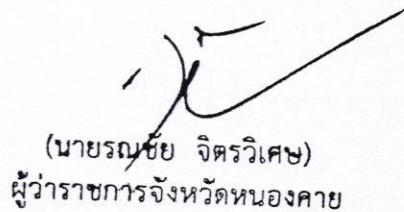 (นายรณชัย จิตรวิเศษ)
ผู้ว่าราชการจังหวัดหนองคาย